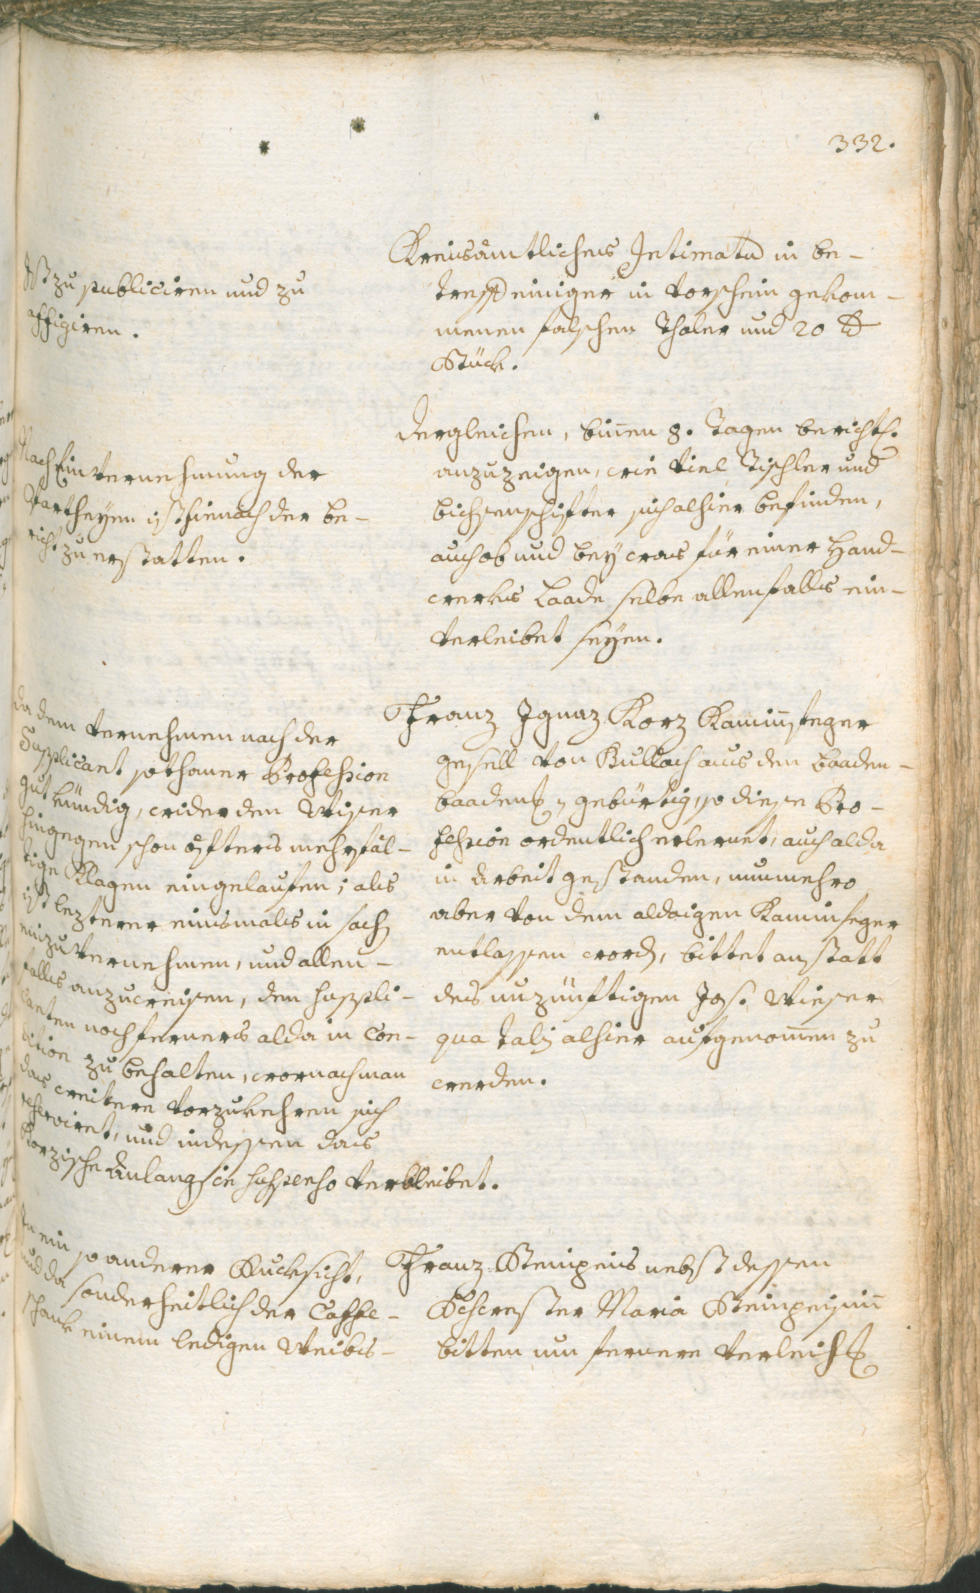 332.
Ist zu publiciren und zu
affigiren.
Kreisämtliches Intimatu in be-
treff einiger in vorschein gekom-
menen falschen Thaler und 20 
Stück.
Nach Einvernehmung der
Partheyen ist hienach der be-
richt zu erstatten.
dergleichen, binnen 8. Tagen berichtl.
anzuzeigen, wie viel Tischler und
bichsenschifter sich alhier befinden,
auch ob und bey was für einer Hand-
werks Laade selbe allenfalls ein-
verleibet seyen.
da dem vernehmen nach der
Supplicant sothaner Profession
gut kündig, wider den Wieser
hingegen schon öfters mehrfäl-
tige Klagen eingelaufen; als
ist lezterer einsmals in sach
einzuvernehmen, und allen-
falls anzuweisen, den suppli-
canten noch ferners alda in Con-
dition zu behalten, wornach man
das weitere vorzukehren sich
reserviret, und indessen das
Korzische Anlangen in suspenso verbleibet.
Franz Ignaz Korz Kaminfeger
gesell von Bullach aus den Baaden-
baaden gebürtig, so diese Pro-
fession ordentlich erlernet, auch alda
in Arbeit gestanden, nunmehro
aber von dem aldaigen Kaminfeger
entlassen word, bittet anstatt
des unzünftigen Jos. Wieser
qua talis alhier aufgenommen zu
werden.
In ein so anderer Rucksicht,
und da sonderheitlich der Caffe-
schank einem ledigen Weibs-
Franz Steinpeis nebst dessen
Schwester Maria Steinpeisin
bitten um fernere verleich